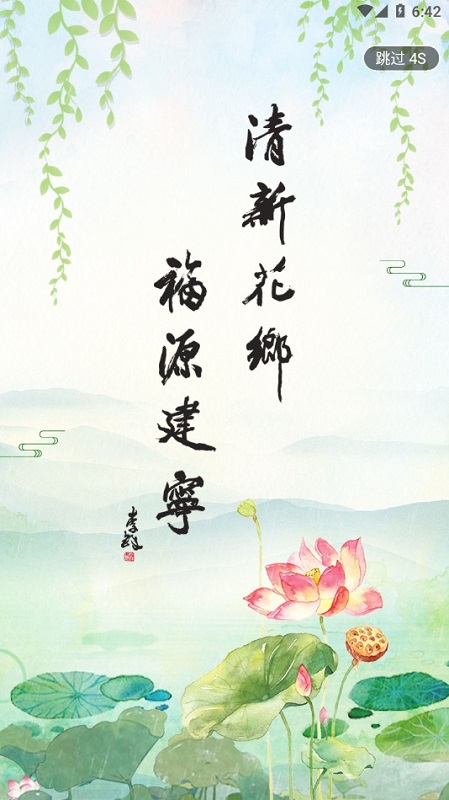 6:42
跳过 4S
清新花鄉
福源建寧